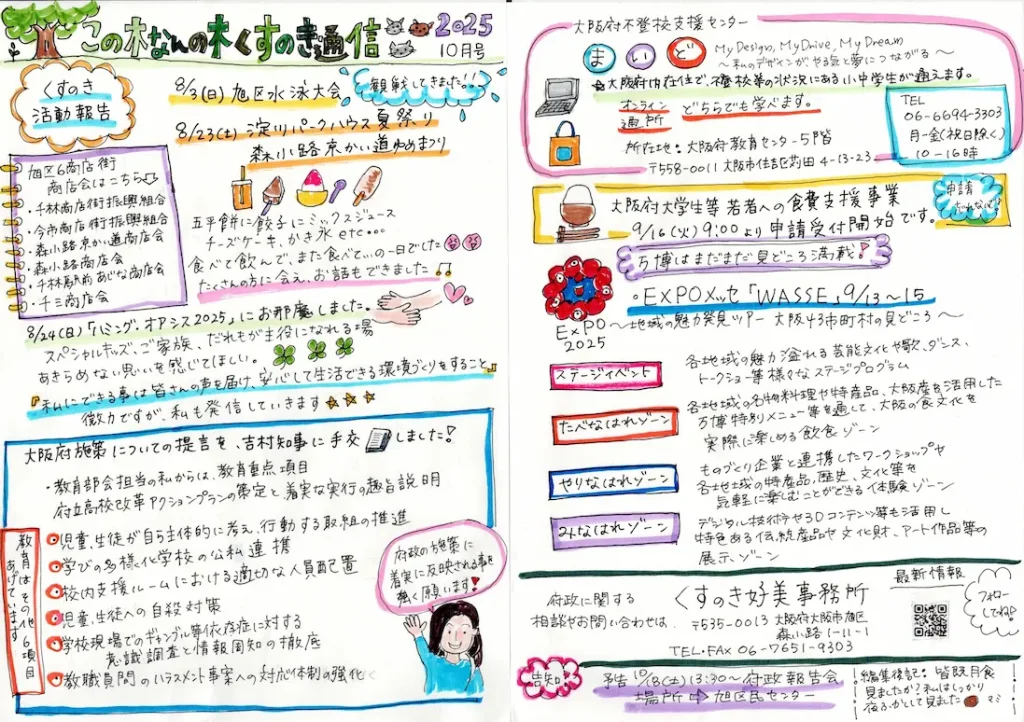 この木なんの木くすのき通信
2025
10月号
くすのき
活動報告
8/3(日) 旭区水泳大会
観戦してきました!!
8/23(土) 淀川パークハウス夏祭り
森小路京かい道ゆめまつり
旭区6商店街
商店会はこちら
・千林商店街振興組合
・今市商店街振興組合
・森小路京かい道商店会
・森小路商店会
・千林駅前あじな商店会
・千三商店会
五平餅に餃子にミックスジュース
チーズケーキ、かき氷etc...
食べて飲んで、また食べて...の一日でした
たくさんの方に会え、お話もできました♫
8/24(日)「ハミング、オアシス2025」にお邪魔しました。
スペシャルキッズ、ご家族、だれもが主役になれる場
あきらめない思いを感じてほしい。
『私にできる事は皆さんの声を届け、安心して生活できる環境づくりをすること』
微力ですが、私も発信していきます
大阪府施策についての提言を、吉村知事に手交しました!
・教育部会担当の私からは、教育重点項目
府立高校改革アクションプランの策定と着実な実行の趣旨説明
教育はその他6項目
あげています
児童、生徒が自ら主体的に考え、行動する取組の推進
学びの多様化学校の公私連携
校内支援ルームにおける適切な人員配置
児童、生徒への自殺対策
学校現場でのギャンブル等依存症に対する
意識調査と情報周知の徹底
教職員間のハラスメント事案への対応体制の強化
府政の施策に
着実に反映される事を
強く願います!
大阪府不登校支援センター
まいど
My Design, My Drive, My Dream
〜私のデザインが、やる気と夢につながる〜
☆大阪府内在住で、不登校等の状況にある小中学生が通えます。
オンライン
通所
どちらでも学べます。
所在地:大阪府教育センター5階
〒558-0011 大阪市住吉区苅田4-13-23
TEL
06-6694-3303
月-金(祝日除く)
10-16時
大阪府大学生等若者への食費支援事業
9/16(火)9:00より申請受付開始です。
申請
万博はまだまだ見どころ満載!
・EXPOメッセ「WASSE」9/13〜15
EXPO
2025
〜地域の魅力発見ツアー 大阪43市町村の見どころ〜
ステージイベント
各地域の魅力溢れる芸能文化や歌、ダンス、
トークショー等様々なステージプログラム
たべなはれゾーン
各地域の名物料理や特産品、大阪産を活用した
万博特別メニュー等を通して、大阪の食文化を
実際に楽しめる飲食ゾーン
やりなはれゾーン
ものづくり企業と連携したワークショップや
各地域の特産品、歴史、文化等を
気軽に楽しむことができる体験ゾーン
みなはれゾーン
デジタル技術や3Dコンテンツ等も活用し
特色ある伝統産品や文化財、アート作品等の
展示ゾーン
府政に関する
相談やお問い合わせは、
くすのき好美事務所
〒535-0013 大阪府大阪市旭区
森小路1-11-1
TEL・FAX 06-7651-9303
最新情報
フォロー
してね!
告知
予告10/18(土)13:30〜府政報告会
場所⇨旭区民センター
編集後記:皆既月食
見ましたか?私はしっかり
夜ふかしして見ました